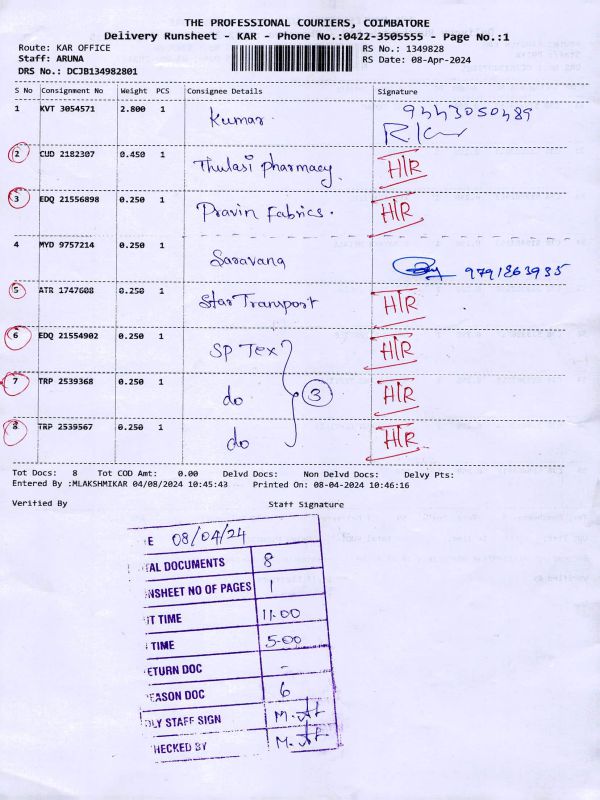 THE PROFESSIONAL COURIERS, COIMBATORE
Delivery Runsheet - KAR - Phone No.:0422-3505555 - Page No.:1
Route: KAR OFFICE RS No.: 1349828
Staff: ARUNA RS Date: 08-Apr-2024
DRS No.: DCJB134982801
S No Consignment No Weight PCS Consignee Details Signature
1 KVT 3054571 2.800 1 Kumar 9443050489
2 CUD 2182307 0.450 1 Thulasi Pharmacy. H/R
3 EDQ 21556898 0.250 1 Pravin Fabrics. H/R
4 MYD 9757214 0.250 1 Saravana 9791863935
5 ATR 1747608 0.250 1 Star Transport H/R
6 EDQ 21554902 0.250 1 SP Tex H/R
7 TRP 2539368 0.250 1 do 3 H/R
8 TRP 2539567 0.250 1 do H/R
Tot Docs: 8 Tot COD Amt: 0.00 Delvd Docs: Non Delvd Docs: Delvy Pts:
Entered By :MLAKSHMIKAR 04/08/2024 10:45:43 Printed On: 08-04-2024 10:46:16
Verified By Staff Signature
E 08/04/24
AL DOCUMENTS 8
NSHEET NO OF PAGES 1
T TIME 11.00
TIME 5-00
ETURN DOC -
EASON DOC 6
LY STAFF SIGN
HECKED BY